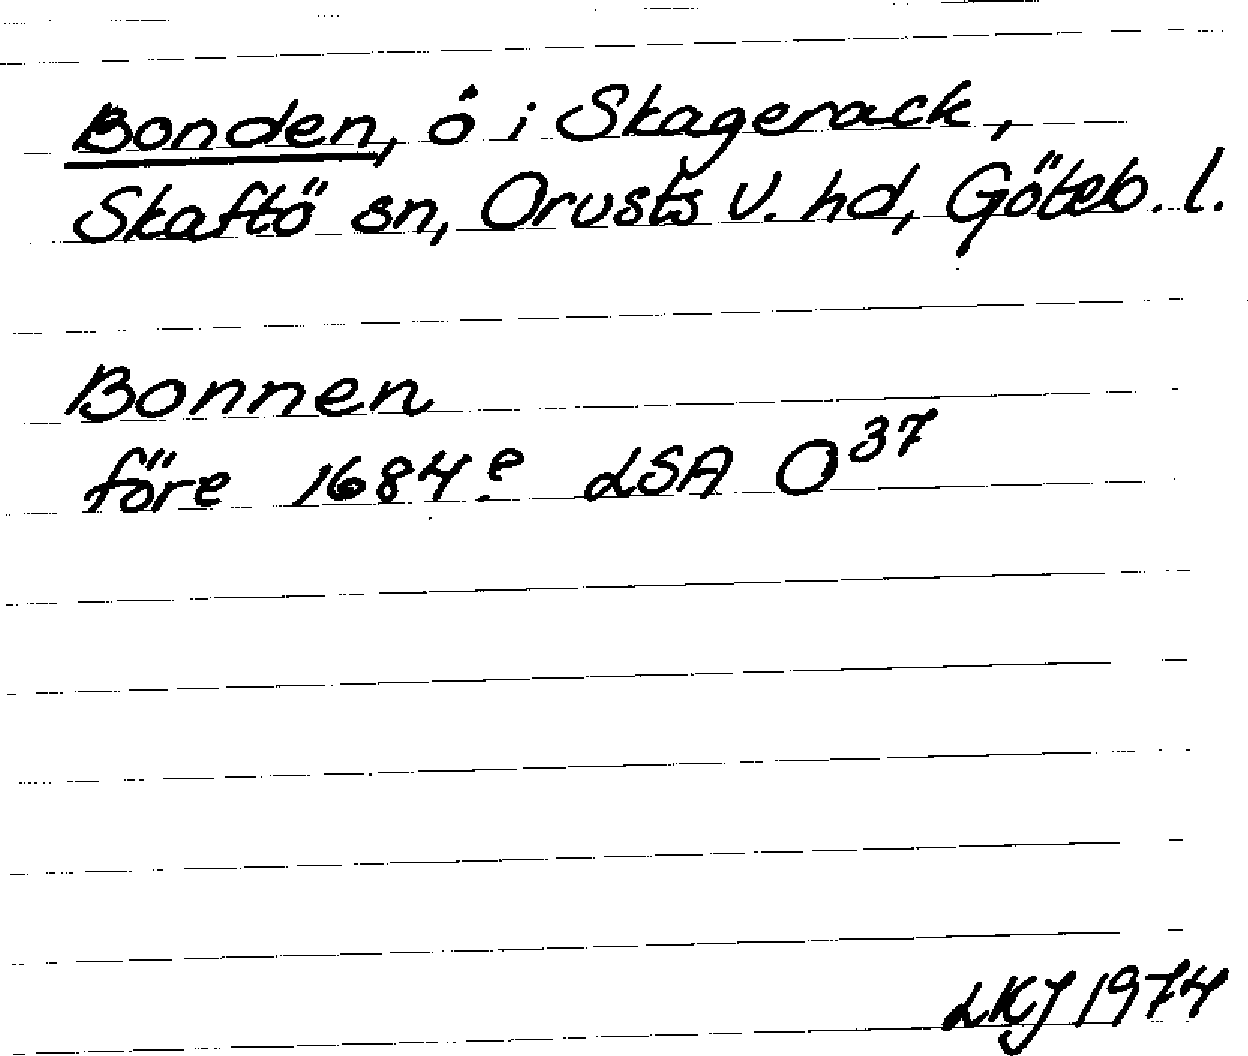 Bonden, ö i Skagerack,
Skaftö sn, Orusts V. hd, Göteb. l.
Bonnen
före 1684? LSA O³⁷
LKJ 1974